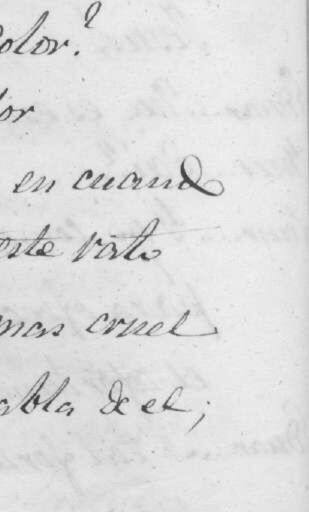 color?
lor
en cuando
este rato
mas cruel
abla de el;